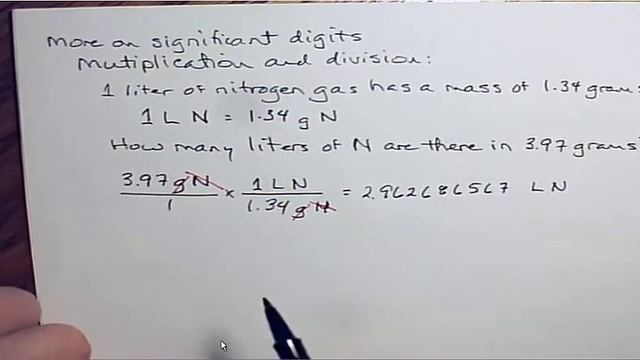 more on significant digits
Mutiplication and division:
1 liter of nitrogen gas has a mass of 1.34 grams
1 L N = 1.34 g N
How many liters of N are there in 3.97 grams
3.97 g N / 1 × 1 L N / 1.34 g N = 2.962686567 L N